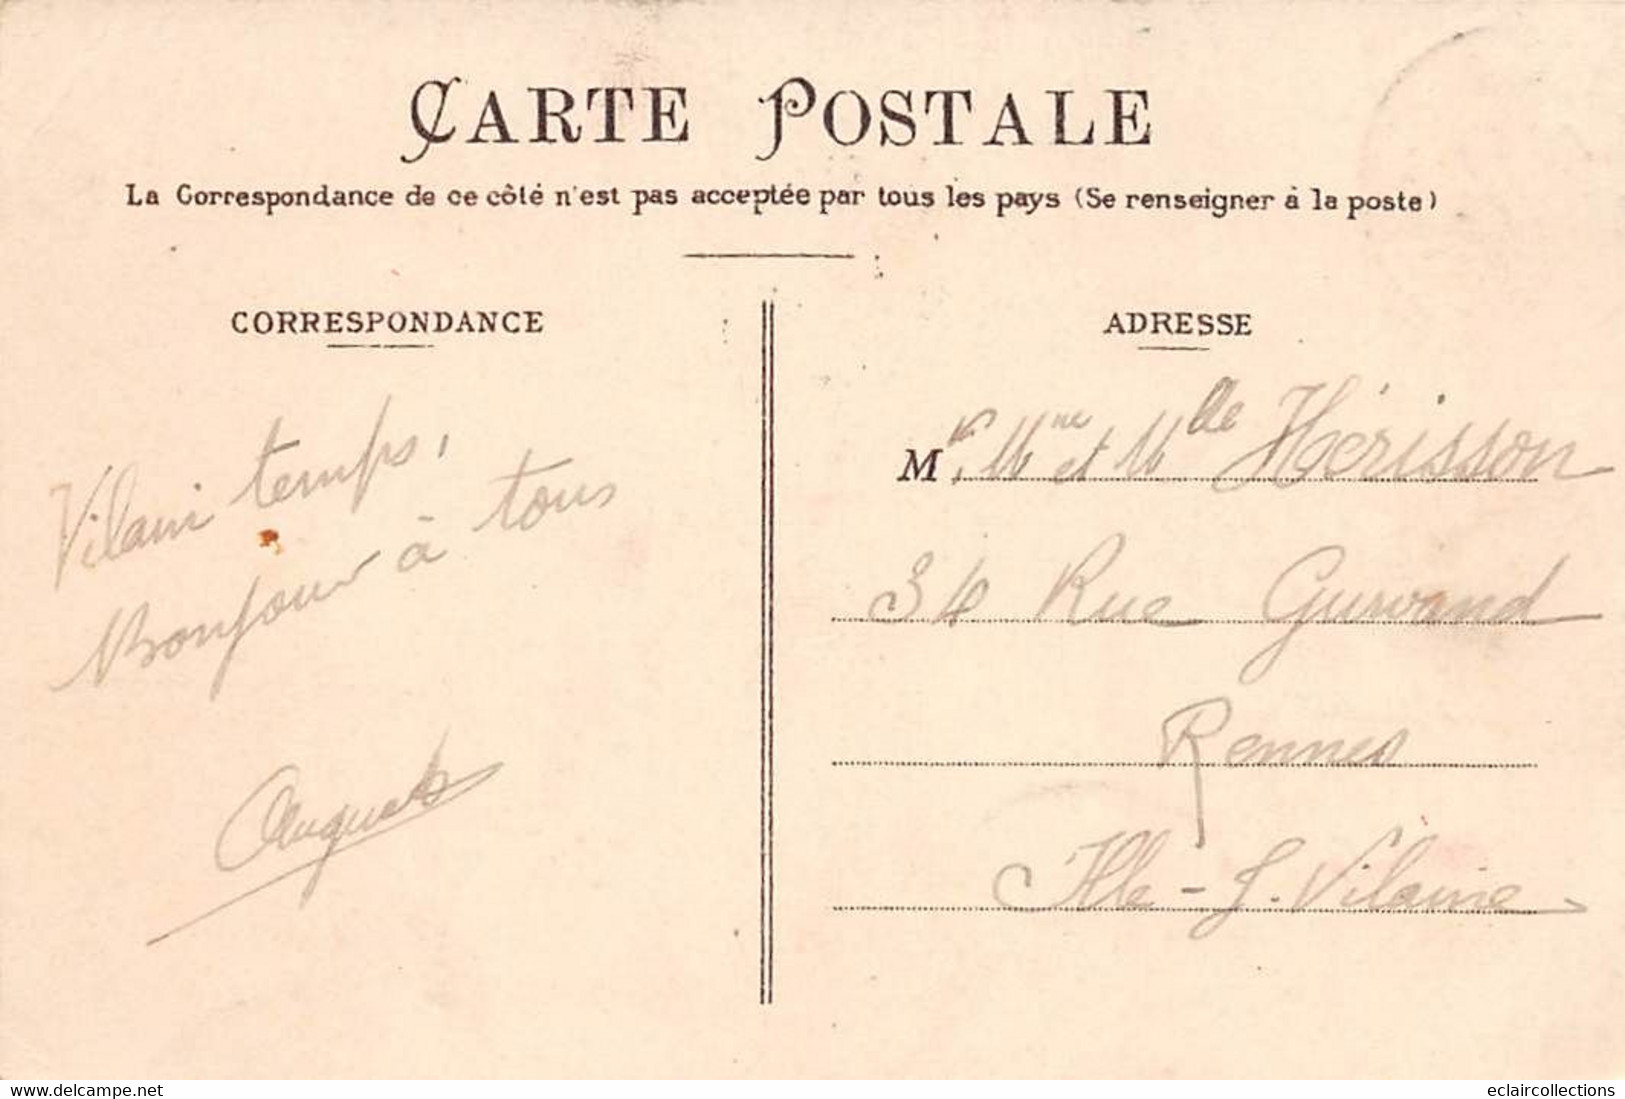 CARTE POSTALE
La Correspondance de ce côté n'est pas acceptée par tous les pays (Se renseigner à la poste)
CORRESPONDANCE
Vilain temps,
Bonjour à tous
ADRESSE
Mr, Mme et Mlle Hérisson
34 Rue Gurvand
Rennes
Ille-&-Vilaine
www.delcampe.net
eclaircollections